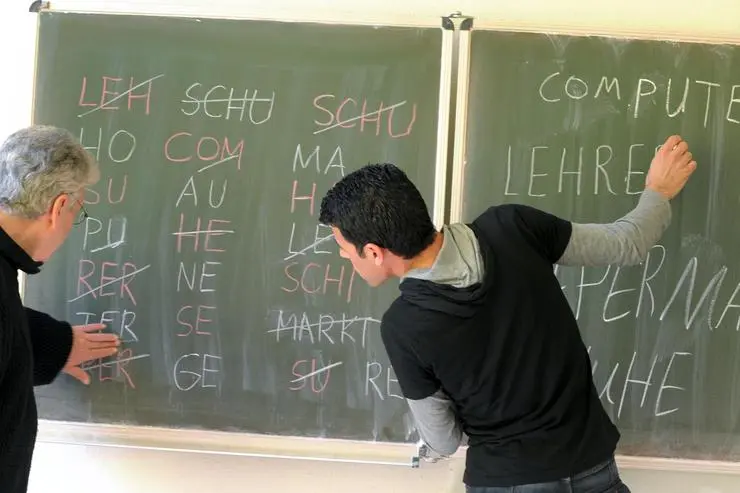 LEH SCHU SCHU
HO COM MA
SU AU H
PU HE LE
RER NE SCHI
TER SE MARKT
RER GE SU RE
COMPUTE
LEHRE
PERMA
UHE